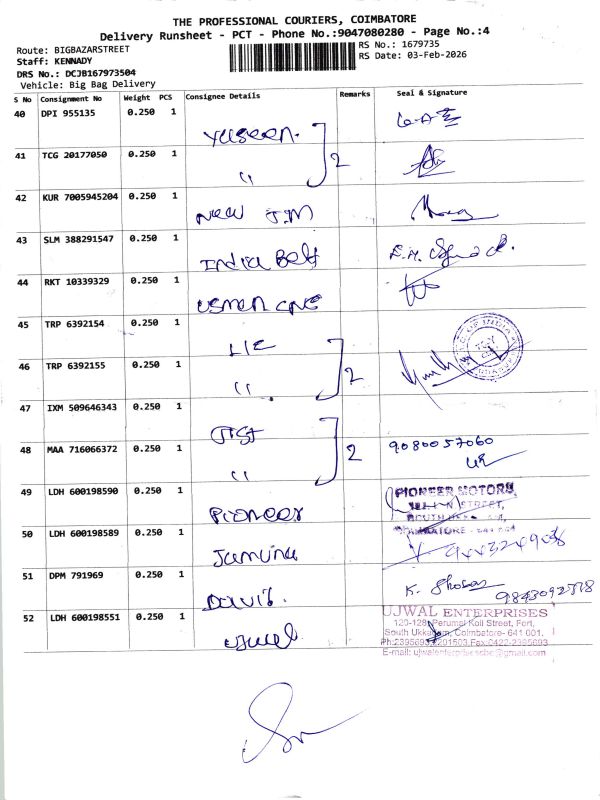 THE PROFESSIONAL COURIERS, COIMBATORE
Delivery Runsheet - PCT - Phone No.:9047080280 - Page No.:4
Route: BIGBAZARSTREET
RS No.: 1679735
Staff: KENNADY
RS Date: 03-Feb-2026
DRS No.: DCJB167973504
Vehicle: Big Bag Delivery
S No Consignment No Weight PCS Consignee Details Remarks Seal & Signature
40 DPI 955135 0.250 1
41 TCG 20177050 0.250 1 2
"
42 KUR 7005945204 0.250 1 New J.M
43 SLM 388291547 0.250 1 India Belt
44 RKT 10339329 0.250 1
45 TRP 6392154 0.250 1 LIC
46 TRP 6392155 0.250 1 " 2
47 IXM 509646343 0.250 1
48 MAA 716066372 0.250 1 " 2 9080057060
49 LDH 600198590 0.250 1 Pioneer PIONEER MOTORS
STREET,
50 LDH 600198589 0.250 1 Jamuna
51 DPM 791969 0.250 1 David.
52 LDH 600198551 0.250 1 Ujwal
UJWAL ENTERPRISES
120-128, Perumal Koil Street, Fort,
South Ukkadam, Coimbatore- 641 001.